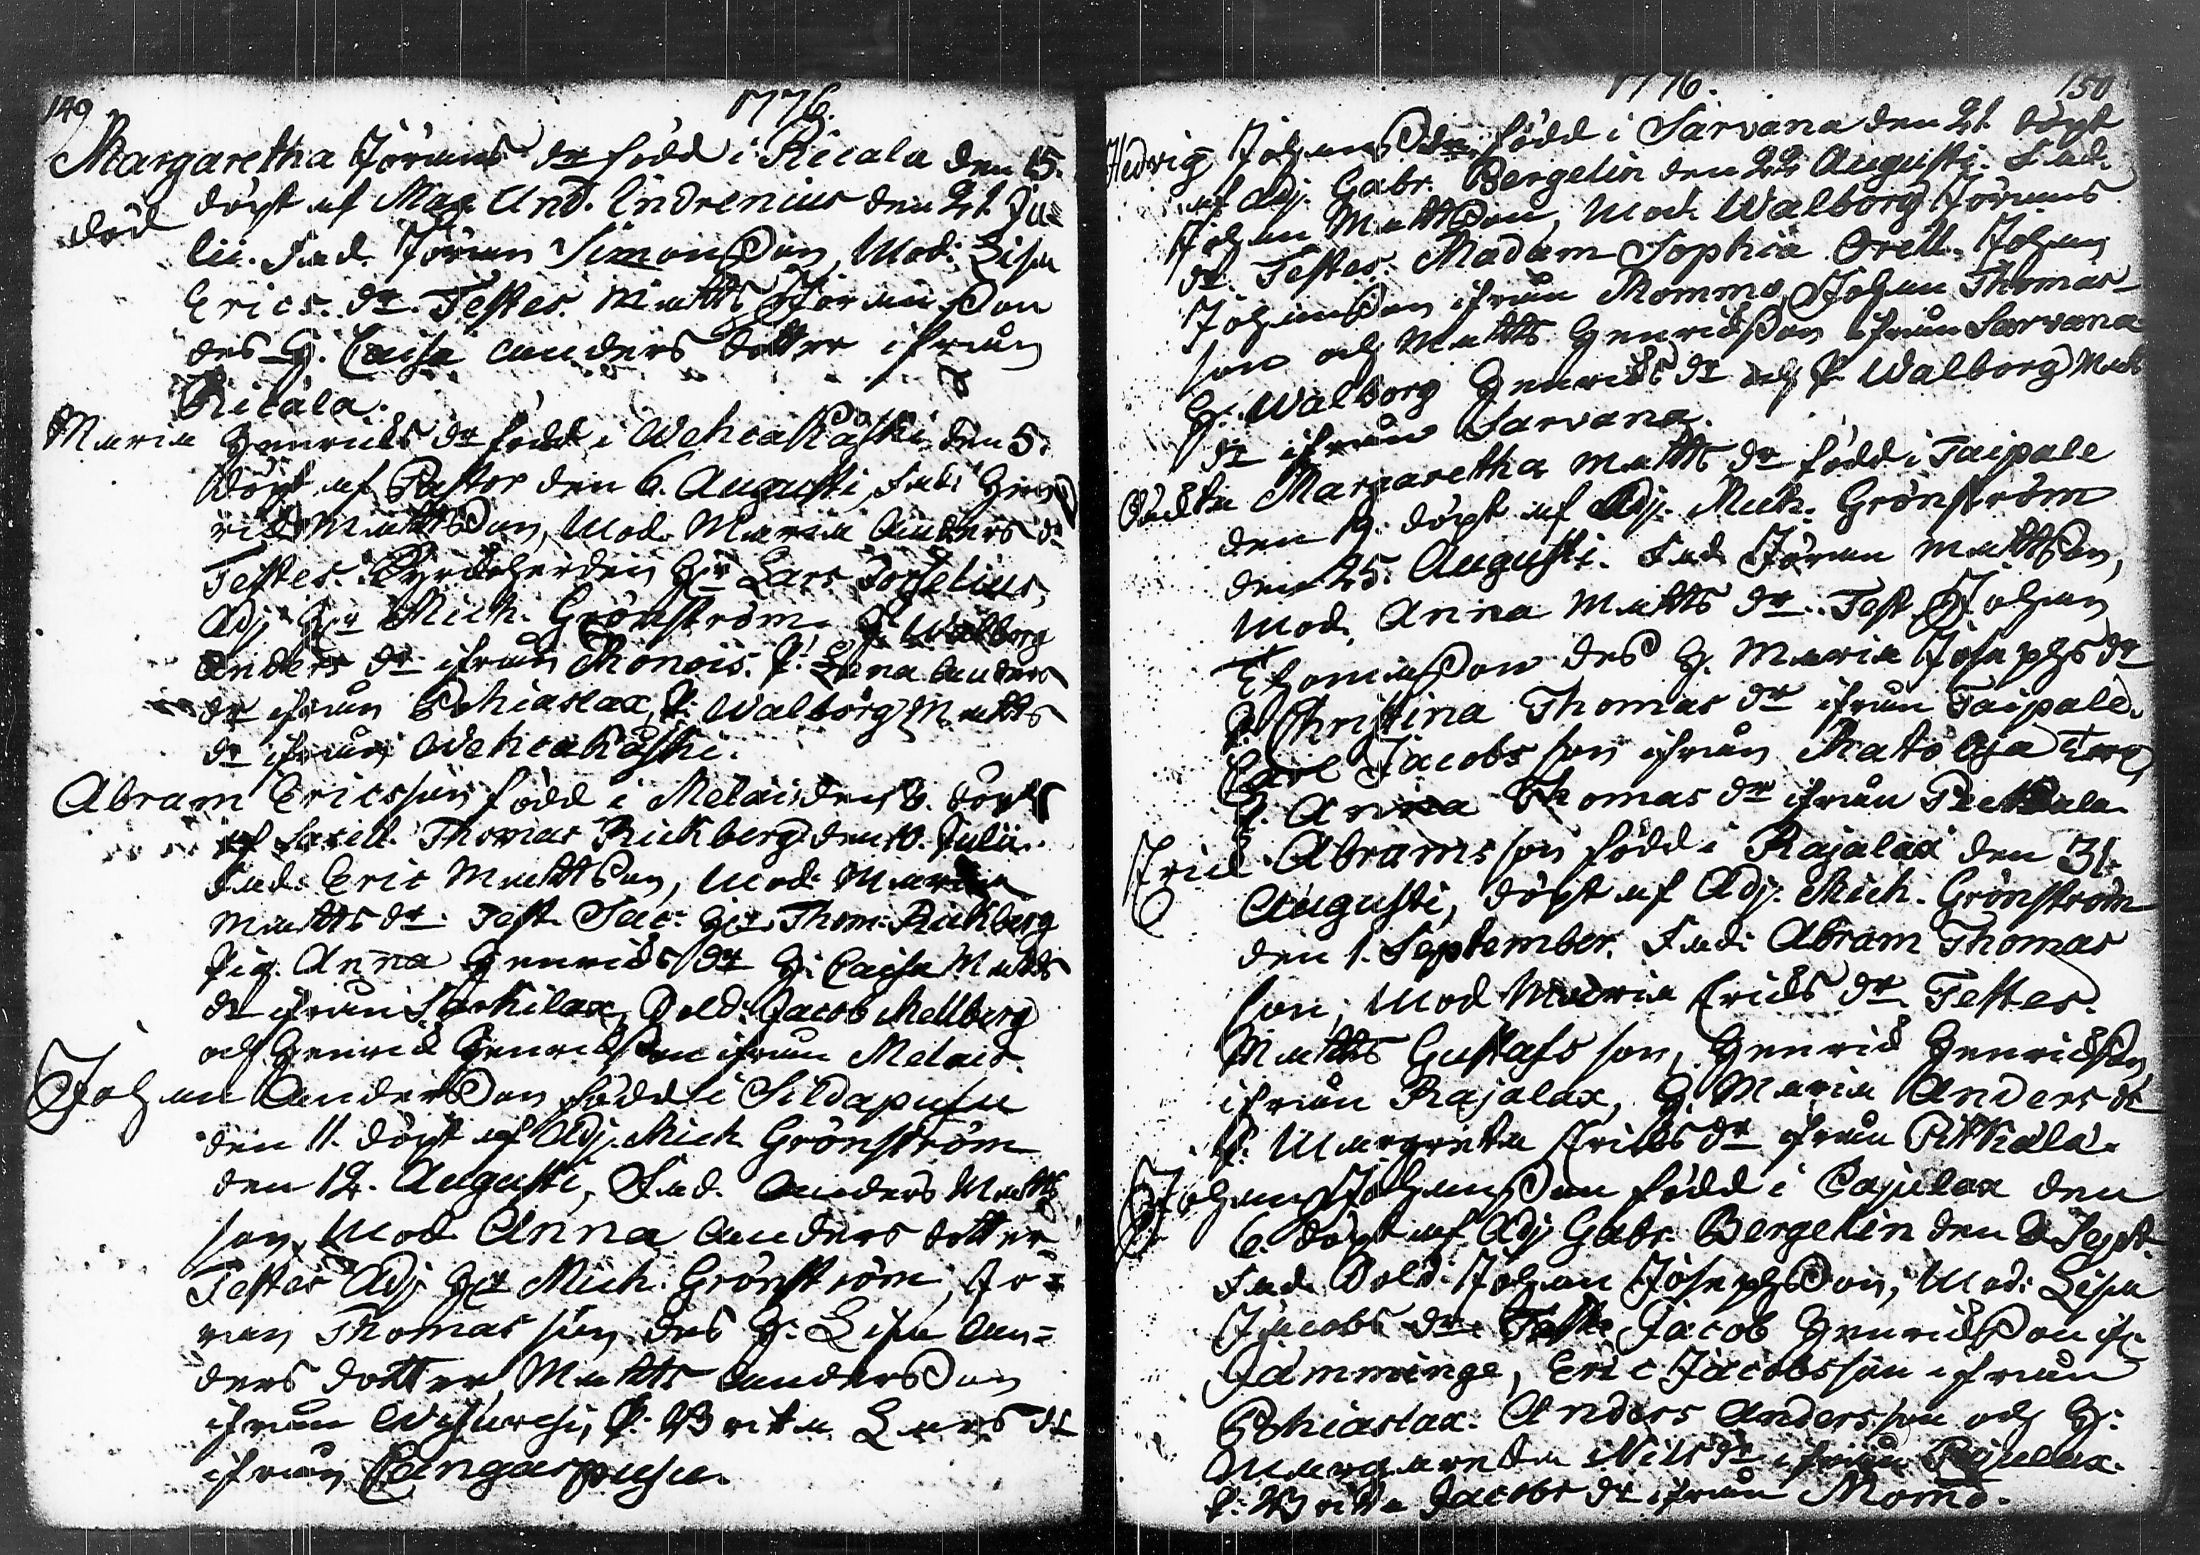 149
1776.
Margaretha Jörans dr född i Kicala den 15.
död
döpt af Mag. And. Indrenius den 21. Ju-
lii. Fad. Jöran Simonsson, Mod: Lisa
Erics. dr. Testes. Matts Jöransson
des H. Caisa anders dotter ifrån
Kicala.
Maria Henrics dr född i Wehcakåski den 5.
döpt af Pastor den 6. Augusti, Fad: Hen-
ric Mattsson, Mod. Maria Anders dr
Testes. Kyrckoherden Hr Lars Forselius,
Adj. Hr Mich. Grönström. H. Walborg
Anders dr ifrån Thonois. P. Lena Anders
dr ifrån Pohiaslax, P. Walborg Matts
dr ifrån Wehcakåski.
Abram Ericsson född i Melais den 8. döpt
af Sacell. Thomas Rickberg den 10. Julii.
Fad. Eric Mattsson, Mod. Maria
Matts dr. Test. Sac: Hr Thom: Rickberg
Pig. Anna Henrics dr H. Caisa Matts
dr ifrån Särkilax, Sold: Jacob Mellberg
och Henric Henricsson ifrån Melais.
Johan Andersson född i Sildapusu
den 11. döpt af Adj. Mich Grönström
den 12. Augusti, Fad. Anders Matts
son, Mod. Anna Anders dotter.
Testes Adj Hr Mich. Grönström, Jö-
ran Thomas son des H. Lisa An-
ders dotter, Matts Andersson
ifrån P. Brita Lars dr
ifrån Cangaspusu.
1776.
150
Hedvig Johans dr född i Sarvana den 21. döpt
af Adj. Gabr. Bergelin den 22 Augusti. Fad.
Johan Mattsson, Mod. Walborg Jörans
dr. Testes. Madam Sophia Orell. Johan
Johansson ifrån Mommo, Johan Thomas-
son och Matts Henricsson ifrån Sarvana
H. Walborg Henrics dr och P. Walborg Matts
dr ifrån Sarvana.
Oäckta Margaretha Matts dr född i Taipale
den 19. döpt af Adj. Mich. Grönström
den 25. Augusti. Fad. Jöran Mattsson,
Mod. Anna Matts dr. Test Johan
Thomasson des H. Maria Josephs dr
P. Christina Thomas dr ifrån Taipale.
Carl Jacobs son ifrån Katto Oja Torp,
P. Anna Thomas dr ifrån
Eric Abrams son född i Rajalax den 31.
Augusti, döpt af Adj. Mich. Grönström
den 1. September. Fad: Abram Thomas
son, Mod Maria Erics dr. Testes.
Matts Gustafs son, Henric Henricsson
ifrån Rajalax, H. Maria Anders dr
P. Margreta Erics dr ifrån Pitkälä.
Johan Johansson född i Cajulax den
6. döpt af Adj Gabr. Bergelin den 8 Sept.
Fad. Sold: Johan Josephsson, Mod: Lisa
Jacobs dr. Test. Jacob Henricsson ifr
Jämminge, Eric Jacobsson ifrån
Pohiaslax. Anders Andersson och H.
Margareta Nils dr ifrån Cajulax.
P. Britta Jacobs dr ifrån Momo.